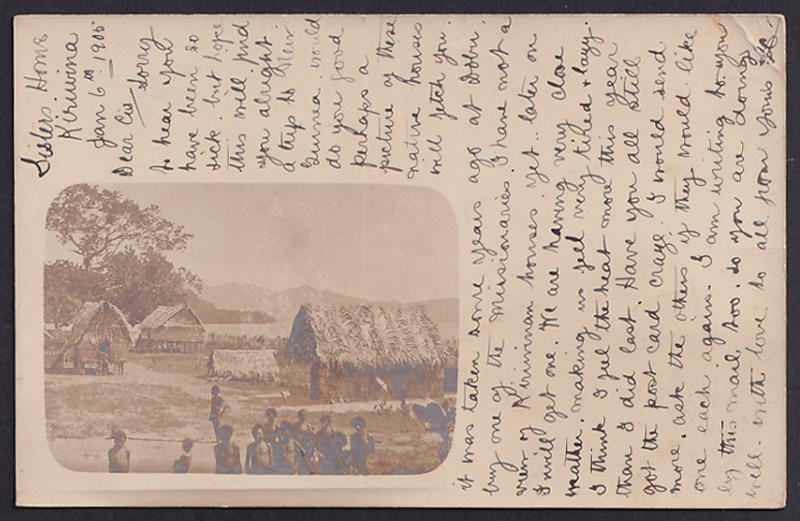 Sisters Home
Kiriwina
Jan 6th 1905
Dear Cis Sorry
to hear you
have been so
sick. but hope
this will find
you alright
a trip to New
Guinea would
do you good
perhaps a
picture of these
native houses
will fetch you.
it was taken some years ago at Dobu.
by one of the Missionaries. I have not a
view of Kiriwinan houses yet. later on
I will get one. We are having very close
weather. making us feel very tired & lazy.
I think I feel the heat more this year
than I did last. Have you all still
got the post card craze. I would send
more. ask the others if they would like
one each again. I am writing to you
by this mail, too. so you are doing
well. with love to all from yours